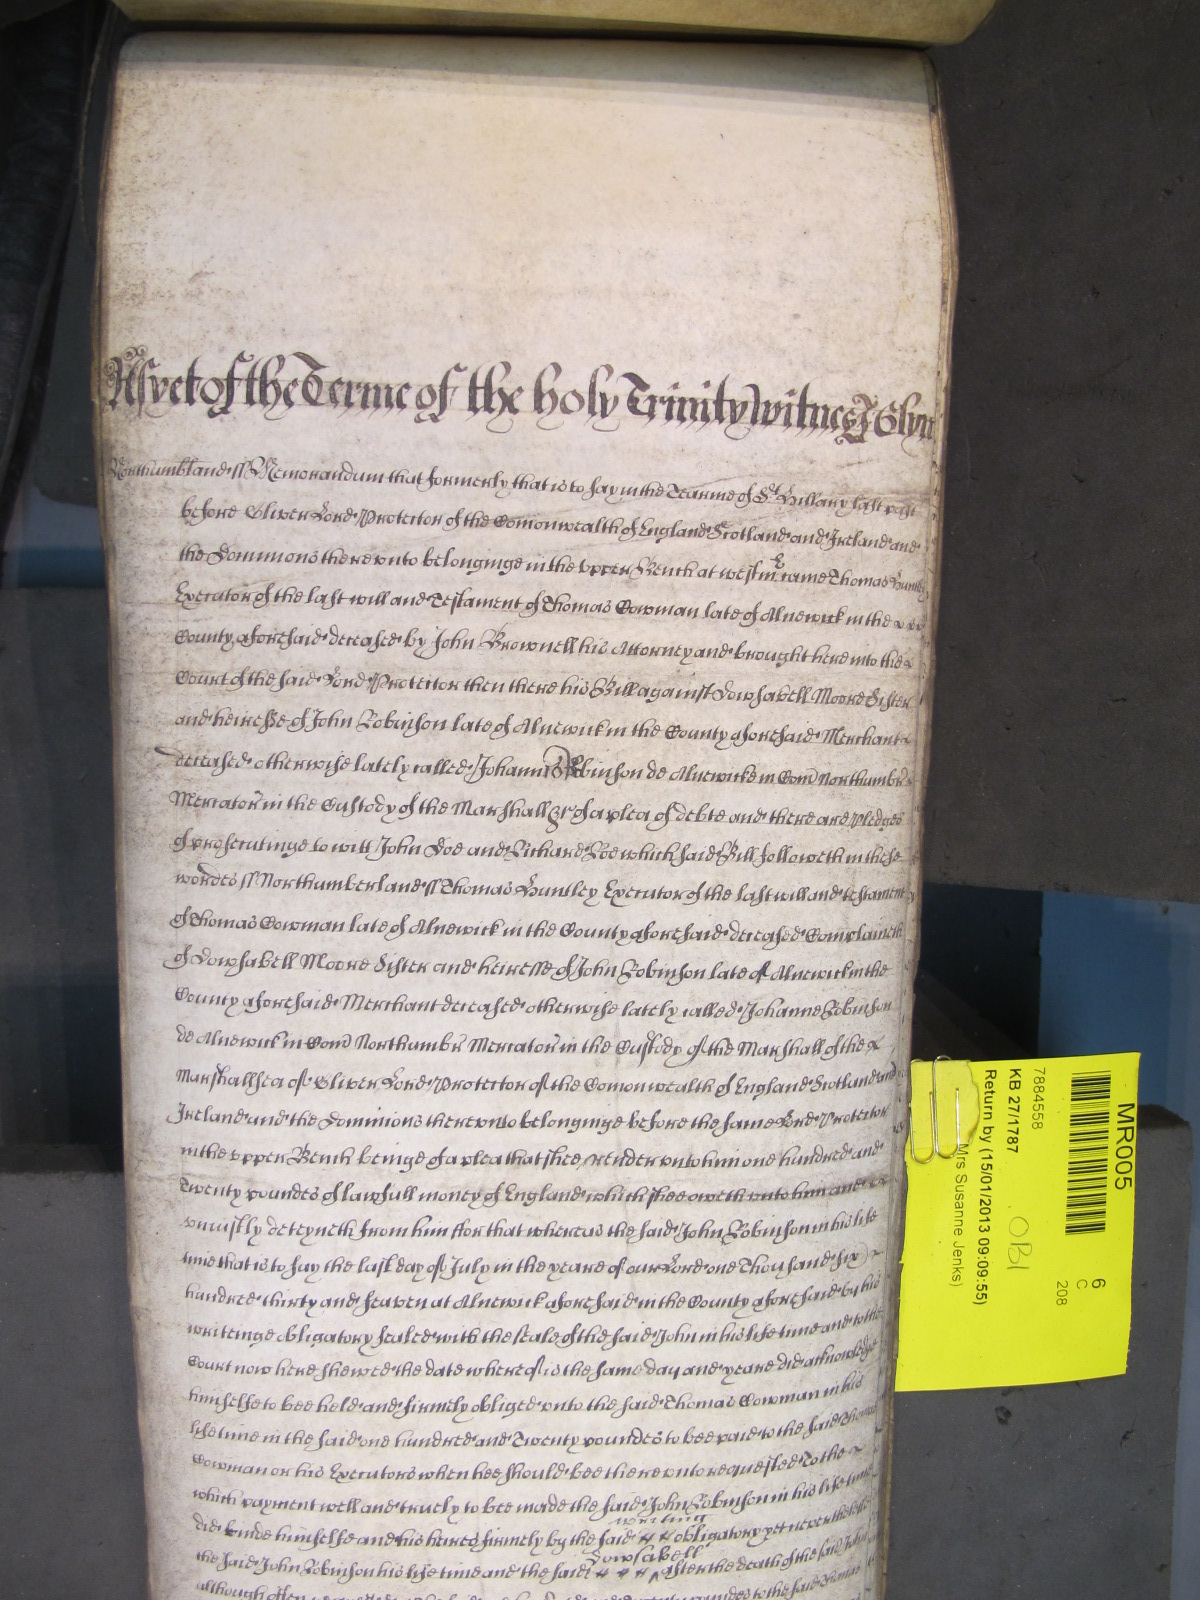 As yet of the Terme of the holy Trinity witnes J Glyn
Northumbland ss Memorandum that formerly that is to say in the Tearme of St Hillary last past
before Oliver Lord Protector of the Comonwealth of England Scotland and Ireland and
the Dominions thereunto belonginge in the upper Bench at westmr came Thomas Huntley
Executor of the last will and Testament of Thomas Cowman late of Alnewick in the
County aforesaid deceased by John Brownell his Attorney and brought here into the
Court of the said Lord Protector then there his Bill against Dowsabell Moore Sister
and heiresse of John Robinson late of Alnewick in the County aforesaid Merchant
deceased otherwise lately called Johannis Robinson de Alnewicke in Com Northumbr
Mercator in the Custody of the Marshall &c of a plea of debte and there are Pledges
of prosecutinge to witt John Doe and Richard Roe which said Bill followeth in these
wordes ss Northumberland ss Thomas Huntley Executor of the last will and testament
of Thomas Cowman late of Alnewick in the County aforesaid deceased Complaineth
of Dowsabell Moore Sister and heiresse of John Robinson late of Alnewick in the
County aforesaid Merchant deceased otherwise lately called Johanne Robinson
de Alnewick in Com Northumbr Mercator in the Custody of the Marshall of the
Marshallsea of Oliver Lord Protector of the Comonwealth of England Scotland and
Ireland and the Dominions thereunto belonginge before the same Lord Protector
in the upper Bench beinge of a plea that shee render unto him one hundred and
Twenty poundes of lawfull money of England which shee oweth unto him and
uniustly deteyneth from him ffor that whereas the said John Robinson in his life
time that is to say the last day of July in the yeare of our Lord one Thousand six
hundred thirty and seaven at Alnewick aforesaid in the County aforesaid by his
writeinge obligatory sealed with the seale of the said John in his life time and to the
Court now here shewed the date whereof is the same day and yeare did acknowledge
himselfe to bee held and firmely obliged unto the said Thomas Cowman in his
life time in the said one hundred and Twenty poundes to bee paid to the said Thomas
Cowman or his Executors when hee should bee thereunto requested To the
which payment well and truely to bee made the said John Robinson in his life time
did binde himselfe and his heires firmely by the said writing obligatory yet neverthelesse
the said John Robinson his life time and the said Dowsabell after the death of the said John
although often
MR005
6
C
208
7884558
KB 27/1787
Return by (15/01/2013 09:09:55)
Mrs Susanne Jenks)
OBI